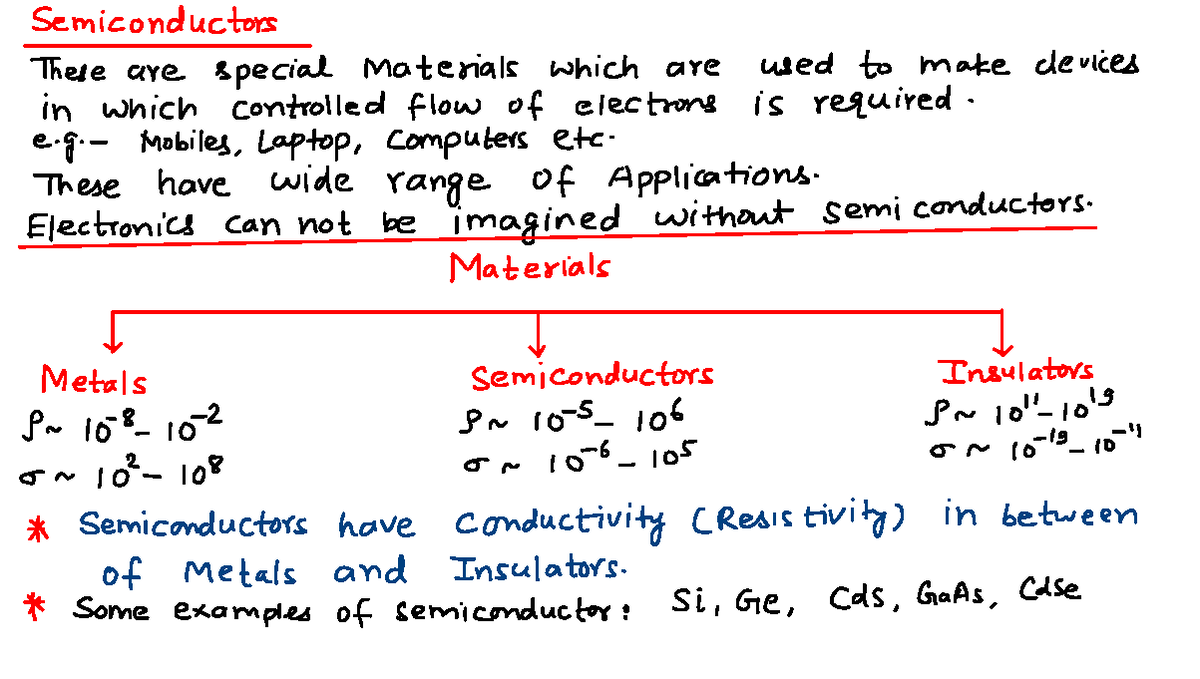 Semiconductors
These are special Materials which are used to make devices
in which controlled flow of electrons is required.
e.g.- Mobiles, Laptop, Computers etc.
These have wide range of Applications.
Electronics can not be imagined without semi conductors.
Materials
Metals Semiconductors Insulators
ρ~ 10⁻⁸- 10⁻² ρ~ 10⁻⁵- 10⁶ ρ~ 10¹¹-10¹⁹
σ~ 10²- 10⁸ σ~ 10⁻⁶- 10⁵ σ~ 10⁻¹⁹-10⁻¹¹
* Semiconductors have Conductivity (Resistivity) in between
of Metals and Insulators.
* Some examples of semiconductor: Si, Ge, Cds, GaAs, CdSe